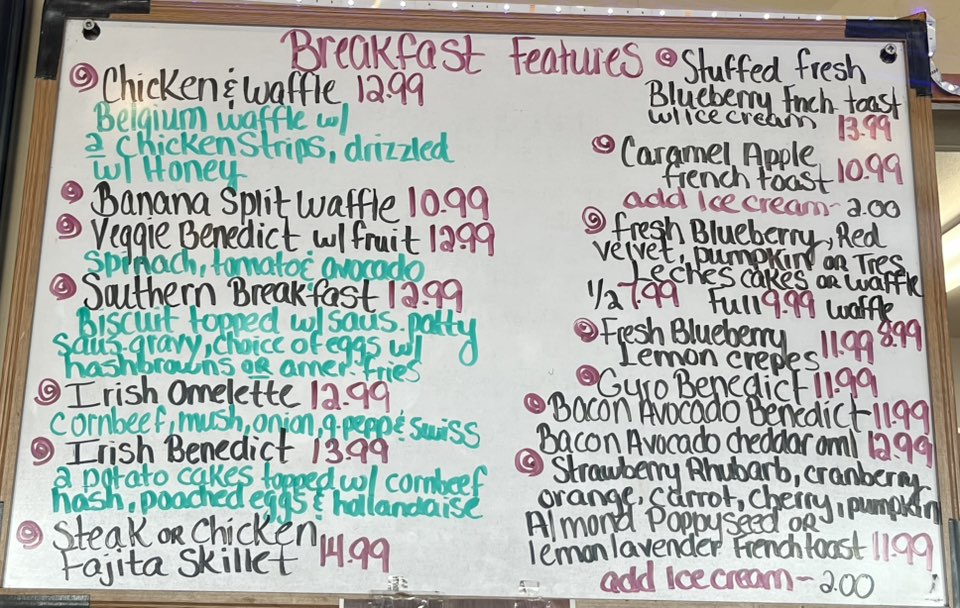 Breakfast Features
Chicken & Waffle 12.99
Belgium waffle w/
2 Chicken Strips, drizzled
w/ Honey
Banana Split Waffle 10.99
Veggie Benedict w/ fruit 12.99
Spinach, tomato & avocado
Southern Breakfast 12.99
Biscuit topped w/ saus. patty
saus. gravy, choice of eggs w/
hashbrowns OR amer. fries
Irish Omelette 12.99
cornbeef, mush, onion, g. pepp & swiss
Irish Benedict 13.99
2 potato cakes topped w/ cornbeef
hash, poached eggs & hollandaise
Steak OR Chicken
Fajita Skillet 14.99
Stuffed fresh
Blueberry Fnch toast
w/ Ice cream 13.99
Caramel Apple
french toast 10.99
add Ice cream - 2.00
Fresh Blueberry, Red
velvet, pumpkin OR Tres
Leches cakes OR Waffle
1/2 7.99 Full 9.99 waffle 8.99
Fresh Blueberry
Lemon crepes 11.99
Gyro Benedict 11.99
Bacon Avocado Benedict 11.99
Bacon Avocado cheddar oml 12.99
Strawberry Rhubarb, cranberry
orange, carrot, cherry, pumpkin
Almond Poppyseed OR
lemon lavender Frenchtoast 11.99
add Ice cream - 2.00